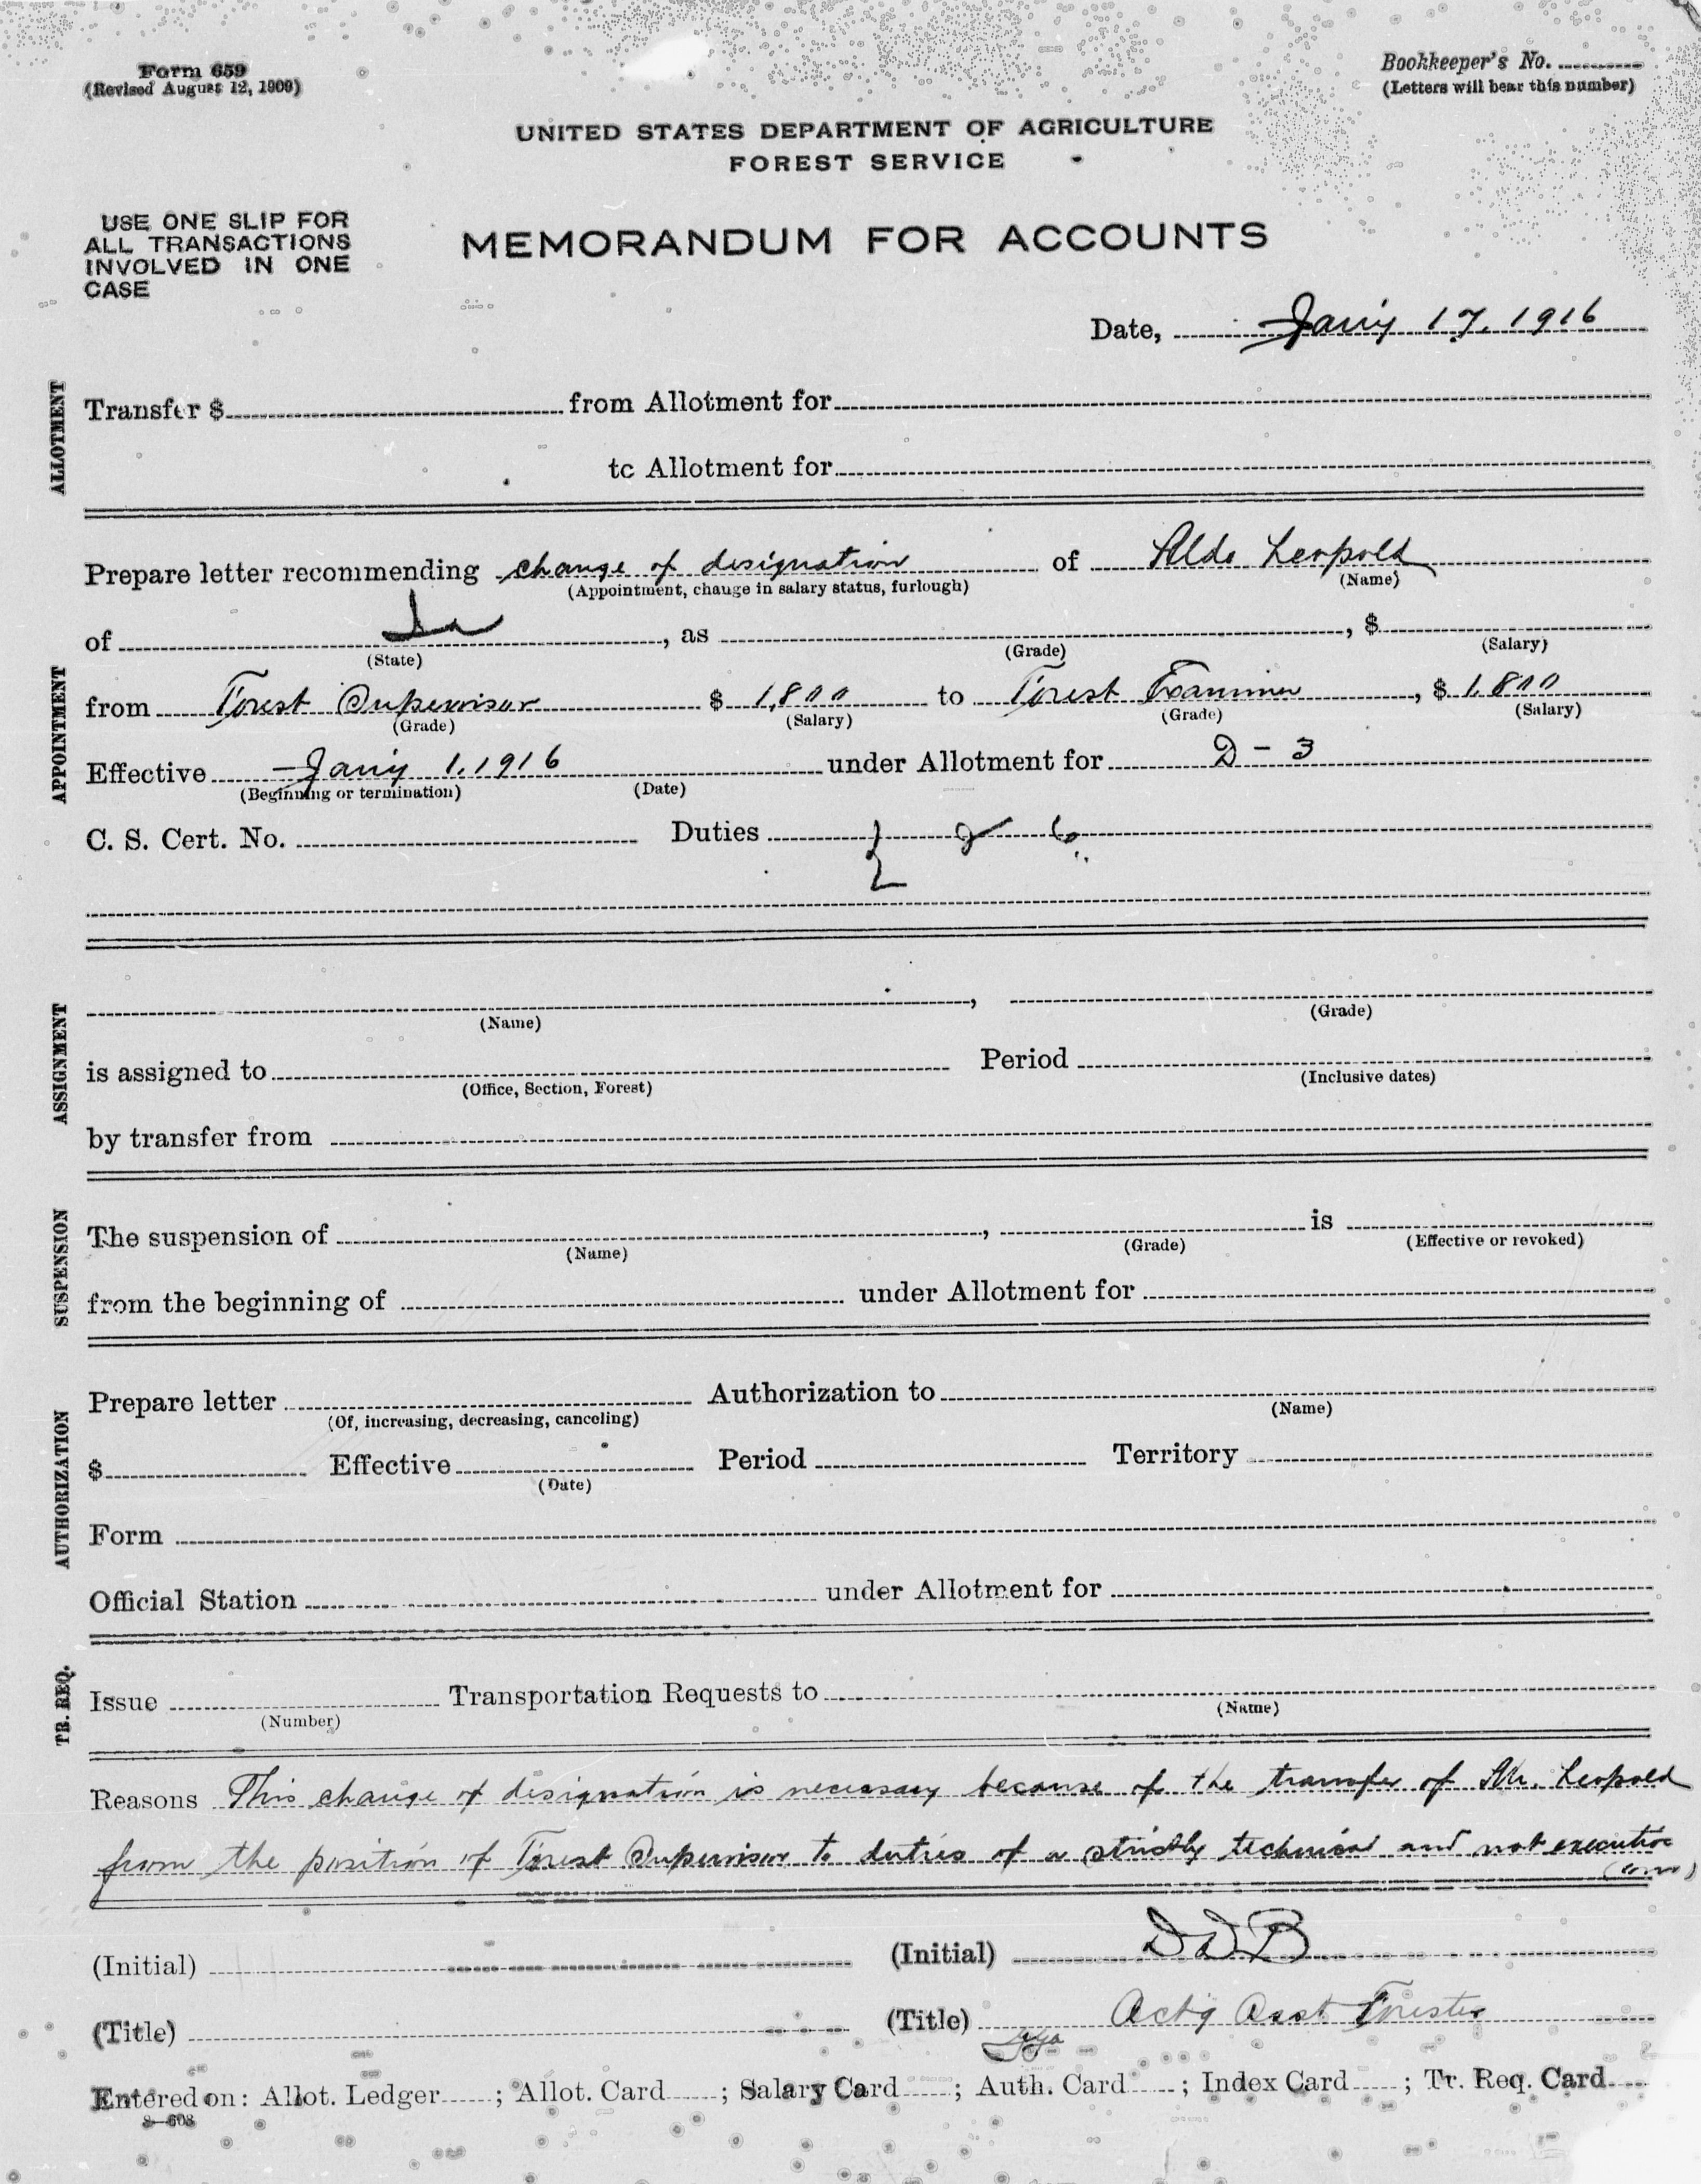 Form 659
(Revised August 12, 1909)
Bookkeeper's No.
(Letters will bear this number)
UNITED STATES DEPARTMENT OF AGRICULTURE
FOREST SERVICE
USE ONE SLIP FOR
ALL TRANSACTIONS
INVOLVED IN ONE
CASE
MEMORANDUM FOR ACCOUNTS
Date, Jan'y 17, 1916
ALLOTMENT
Transfer $ from Allotment for
to Allotment for
APPOINTMENT
Prepare letter recommending change of designation of Aldo Leopold
(Appointment, change in salary status, furlough) (Name)
of Ia , as , $
(State) (Grade) (Salary)
from Forest Supervisor $ 1,800 to Forest Examiner , $ 1,800
(Grade) (Salary) (Grade) (Salary)
Effective Jan'y 1, 1916 under Allotment for D-3
(Beginning or termination) (Date)
C. S. Cert. No. Duties
ASSIGNMENT
,
(Name) (Grade)
is assigned to Period
(Office, Section, Forest) (Inclusive dates)
by transfer from
SUSPENSION
The suspension of , is
(Name) (Grade) (Effective or revoked)
from the beginning of under Allotment for
AUTHORIZATION
Prepare letter Authorization to
(Of, increasing, decreasing, canceling) (Name)
$ Effective Period Territory
(Date)
Form
Official Station under Allotment for
TR. REQ.
Issue Transportation Requests to
(Number) (Name)
Reasons This change of designation is necessary because of the transfer of Mr. Leopold
from the position of Forest Supervisor to duties of a strictly technical and not executive
(over)
(Initial) (Initial) DDB
(Title) (Title) Act'g Asst Forester
Entered on: Allot. Ledger ; Allot. Card ; Salary Card ; Auth. Card ; Index Card ; Tr. Req. Card
8-608